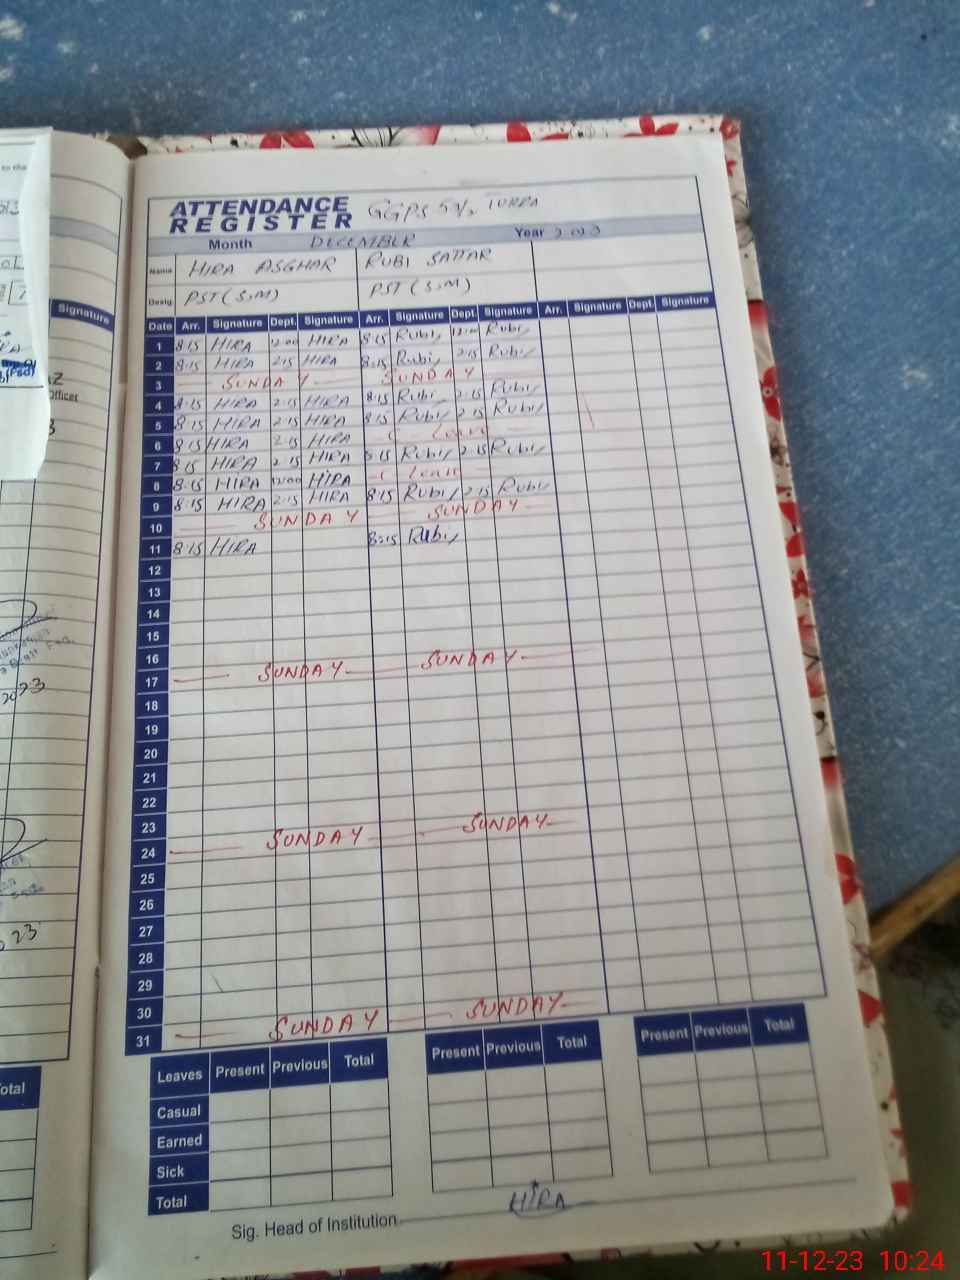 to the
ATTENDANCE
REGISTER GGPS
Month DECEMBER Year
Name HIRA ASGHAR RUBI SATTAR
Desig. PST (S.M) PST (S.M)
Signature
Date Arr. Signature Dept. Signature Arr. Signature Dept. Signature Arr. Signature Dept. Signature
1 8:15 HIRA 12:00 HIRA 8:15 Rubi 12:00 Rubi
2 8:15 HIRA 2:15 HIRA 8:15 Rubi 2:15 Rubi
3 SUNDAY SUNDAY
4 8:15 HIRA 2:15 HIRA 8:15 Rubi 2:15 Rubi
5 8:15 HIRA 2:15 HIRA 8:15 Rubi 2:15 Rubi
6 8:15 HIRA 2:15 HIRA Leave
7 8:15 HIRA 2:15 HIRA 8:15 Rubi 2:15 Rubi
8 8:15 HIRA 12:00 HIRA Leave
9 8:15 HIRA 2:15 HIRA 8:15 Rubi 2:15 Rubi
10 SUNDAY SUNDAY
11 8:15 HIRA 8:15 Rubi
12
13
14
15
16
17 SUNDAY SUNDAY
18
19
20
21
22
23
24 SUNDAY SUNDAY
25
26
27
28
29
30
31 SUNDAY SUNDAY
Leaves Present Previous Total Present Previous Total Present Previous Total
Casual
Earned
Sick
Total
Sig. Head of Institution HIRA
11-12-23 10:24